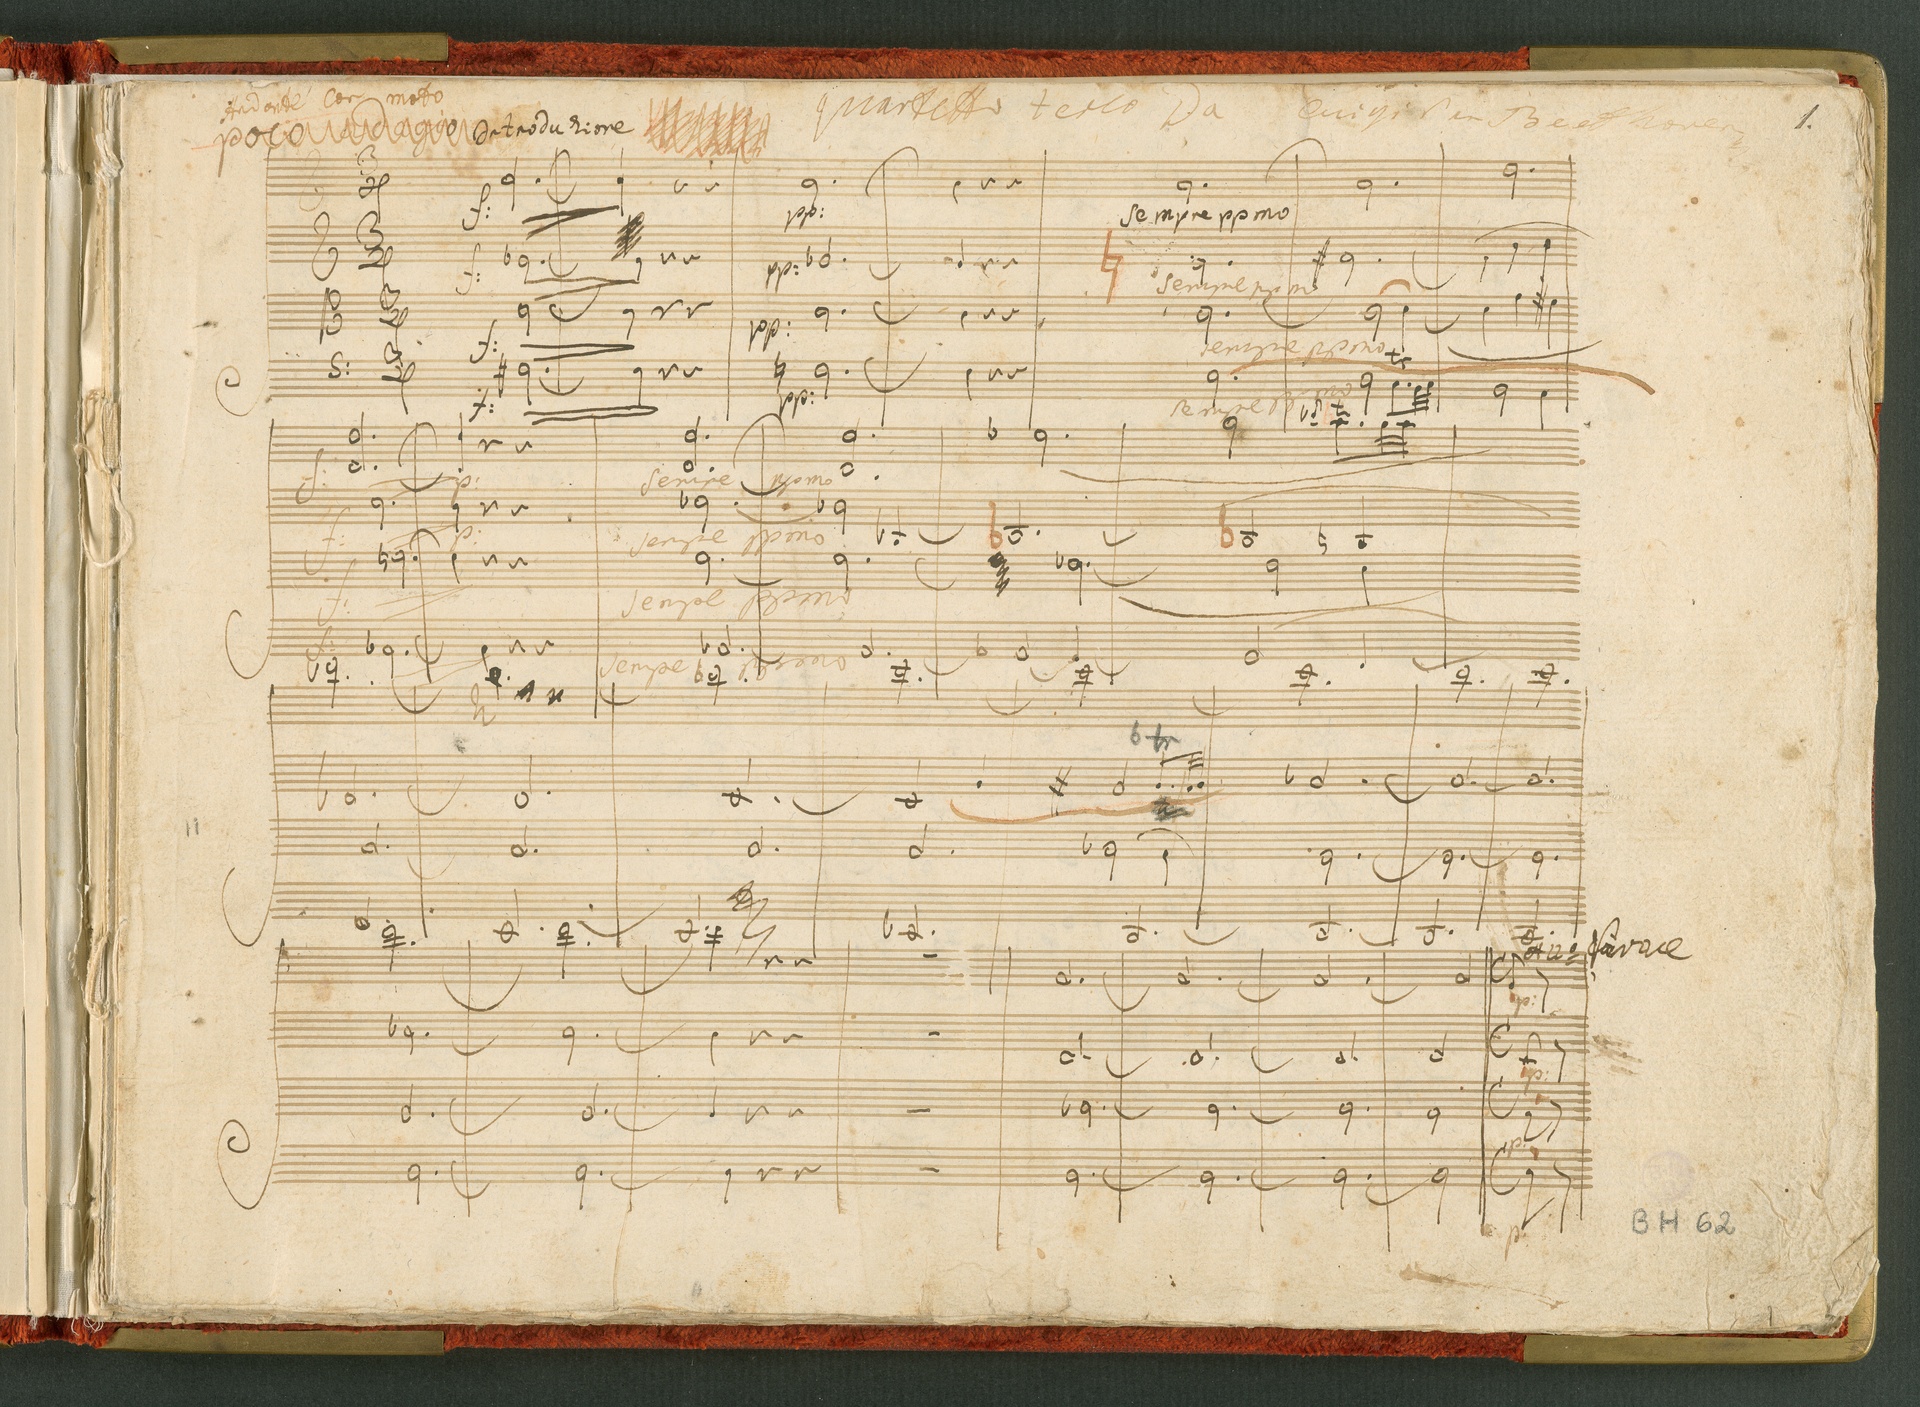 Andante con moto
poco adagio Introduzione quartetto terzo Da Luigi van Beethoven 1.
f: pp: sempre ppmo
f: pp: sempre ppmo
f: pp: sempre ppmo
tr
f: pp: sempre ppmo
f: p: sempre ppmo
f: p: sempre ppmo
f: sempre ppmo
f: sempre ppmo
tr
Allo vivace
BH 62